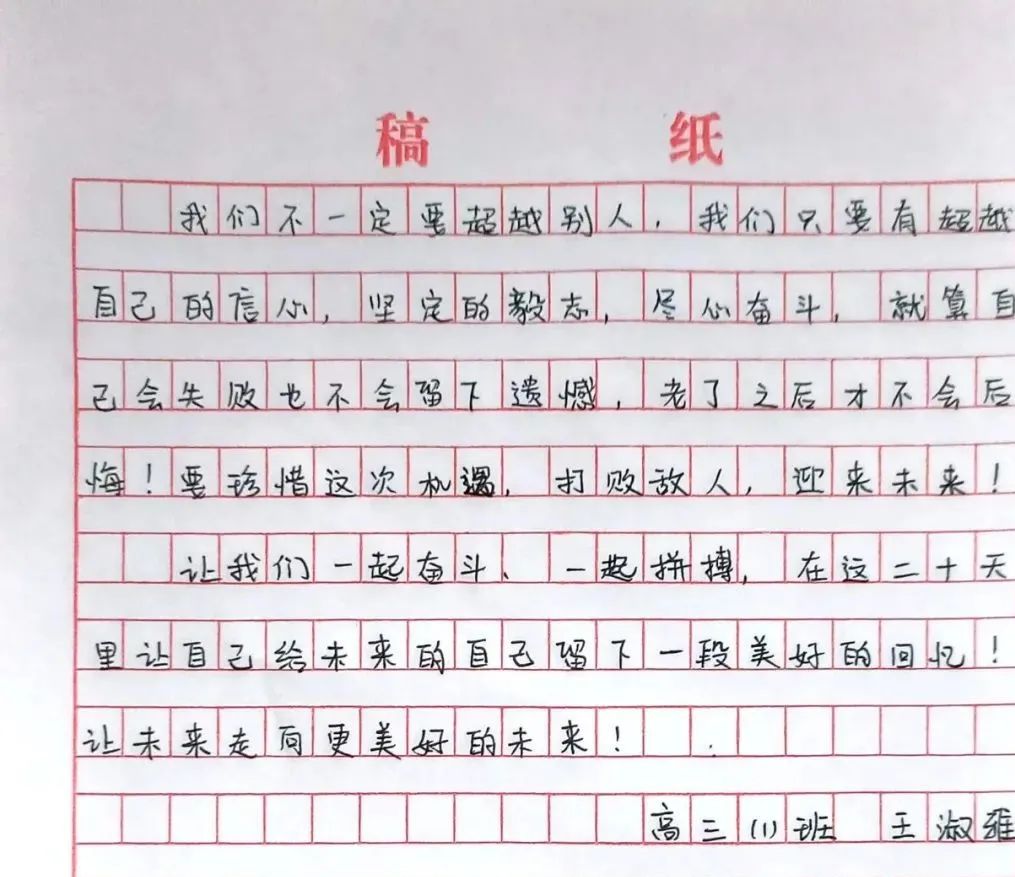 稿 纸
我们不一定要超越别人，我们只要有超越
自己的信心，坚定的毅志，尽心奋斗，就算自
己会失败也不会留下遗憾，老了之后才不会后
悔！要珍惜这次机遇，打败敌人，迎来未来！
让我们一起奋斗、一起拼搏，在这二十天
里让自己给未来的自己留下一段美好的回忆！
让未来走向更美好的未来！
高三(1)班 王淑雅